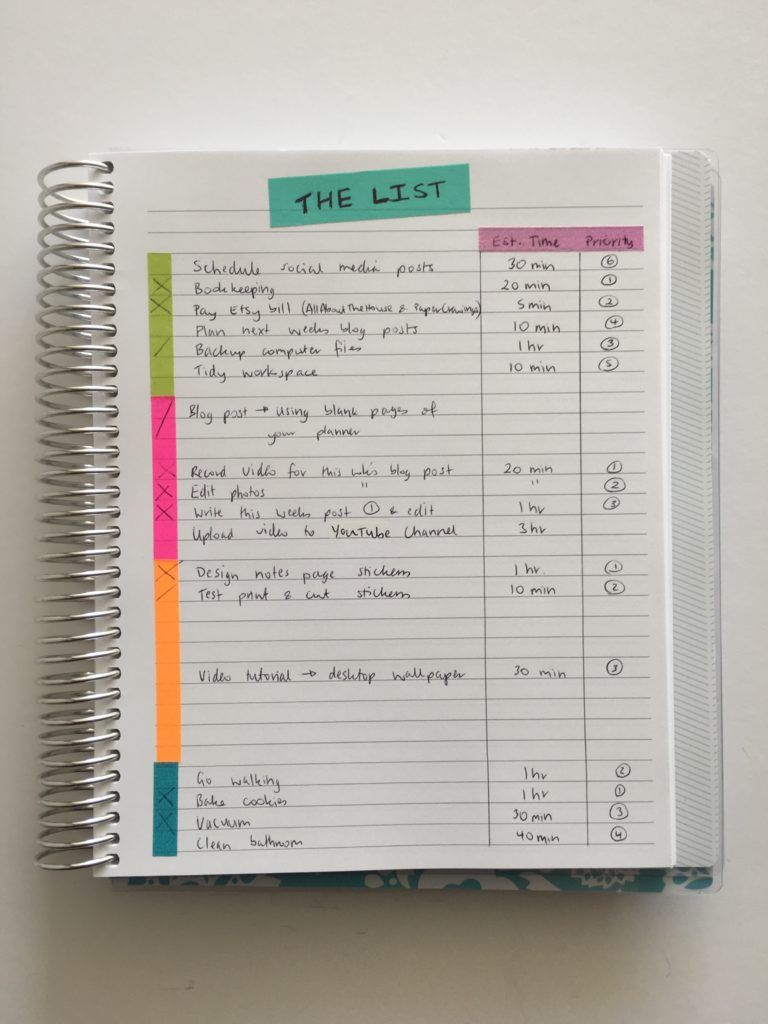 THE LIST
Est. Time Priority
Schedule social media posts 30 min 6
X Bookkeeping 20 min 1
X Pay Etsy bill (AllAboutTheHouse & Paper Cravings) 5 min 2
Plan next weeks blog posts 10 min 4
/ Backup computer files 1 hr 3
Tidy workspace 10 min 5
/ Blog post → Using blank pages of
your planner
X Record video for this wk's blog post 20 min 1
X Edit photos " " 2
X Write this weeks post ① & edit 1 hr 3
Upload video to YouTube Channel 3 hr
X Design notes page stickers 1 hr. 1
/ Test print & cut stickers 10 min 2
Video tutorial → desktop wallpaper 30 min 3
Go walking 1 hr 2
X Bake cookies 1 hr 1
X Vacuum 30 min 3
Clean bathroom 40 min 4